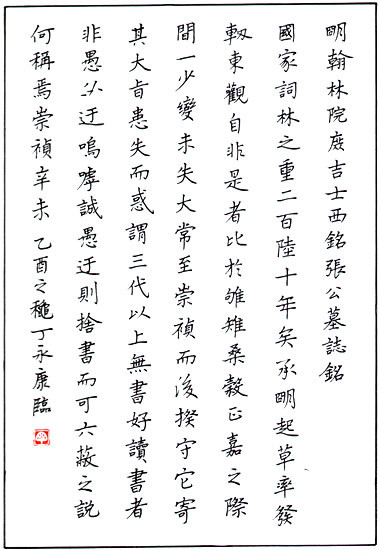 明翰林院庶吉士西銘張公墓誌銘
國家詞林之重二百陸十年矣承明起草率發
軔東觀自非是者比於雊雉桑穀正嘉之際
間一少變未失大常至崇禎而後揆守它寄
其大旨患失而惑謂三代以上無書好讀書者
非愚必迂嗚嘑誠愚迂則捨書而可六蔽之説
何稱焉崇禎辛未 乙酉之穐丁永康臨